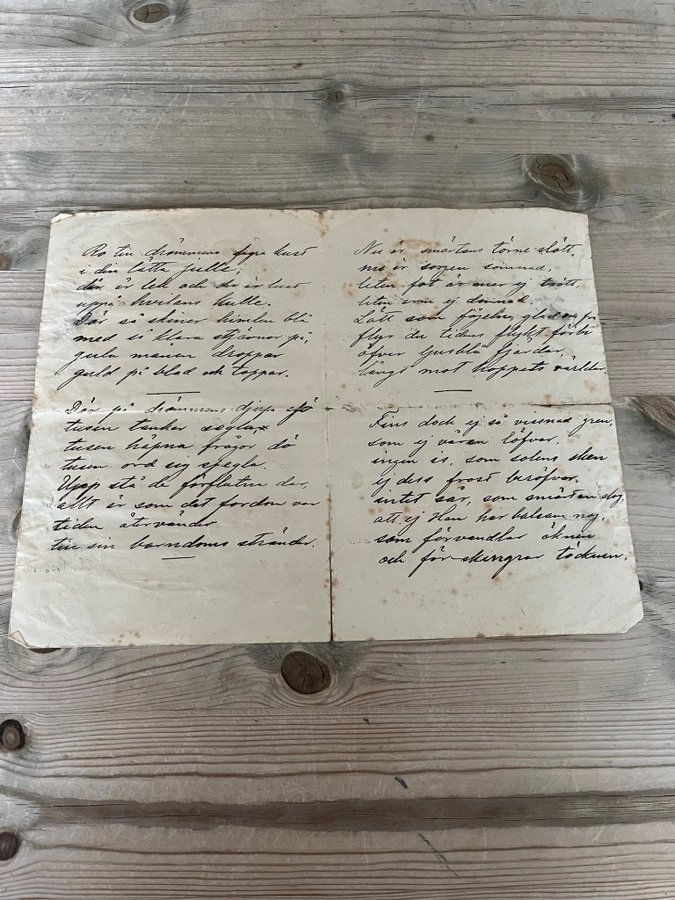 Ro till drömmens fagra kust
i din lätta julle,
där är lek och där är lust
uppå hvilans kulle.
Där så skiner himlen blå
med så klara stjärnor på,
gula månen droppar
guld på blad och toppar.
Där på drömmens djupa sjö
tusen tankar segla
tusen häpna frågor dö
tusen ord sig spegla.
Upp stå de förflutna dar,
allt är som det fordom var
tiden återvänder
till sin barndoms stränder.
Nu är smärtans törne slött,
nu är sorgen somnad,
liten fot är mer ej trött,
liten arm ej domnad.
Lätt som fågeln, glad en
flyr du tidens flykt förbi
öfver ljusblå fjärdar,
långt mot hoppets världar.
Fins dock ej så vissnad gren,
som ej våren löfvar.
ingen is, som solens sken
ej dess frost beröfvar.
intet sår, som smärtan slog
att ej Han har balsam nog,
som förvandlar öknen
och förskingrar töcknen.